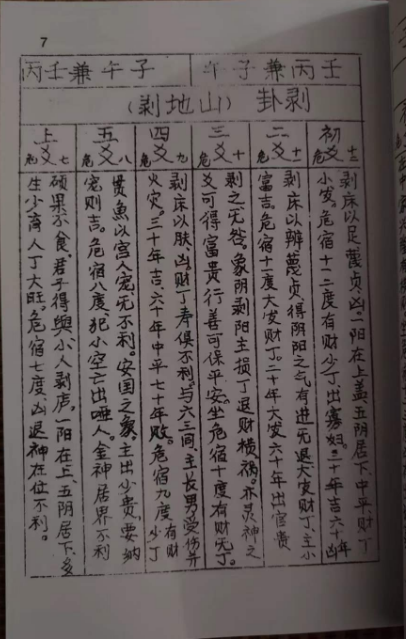 7
壬丙兼子午
子午兼壬丙
剥卦（山地剥）
初爻
危十三
剥床以足蔑贞凶。一阳在上盖五阴居下，中平财丁
小发。危宿十二度有财少丁，出寡妇。二十年吉六十年凶
二爻
危十一
剥床以辨蔑贞，得阴阳之气有进无退大发财丁，主小
富吉。危宿十一度大发财丁。二十年大发六十年出官贵
三爻
危十
剥之无咎。象阴剥阳主损丁退财横祸。亦灵神之
爻可得富贵行善可保平安。坐危宿十度有财无丁。
四爻
危九
剥床以肤，凶。财丁寿俱不利。与六三同，主长男受伤并
火灾。三十年吉，六十年中平七十年败。危宿九度有财少丁
五爻
危八
贯鱼以宫人宠无不利。安国之象，主出少贵，要纳
宠则吉。危宿八度，犯小空亡出哑人，金神居界不利
上爻
危七
硕果不食，君子得舆，小人剥店。一阳在上、五阴居下，多
生少育人丁大旺。危宿七度，凶退神在位不利。